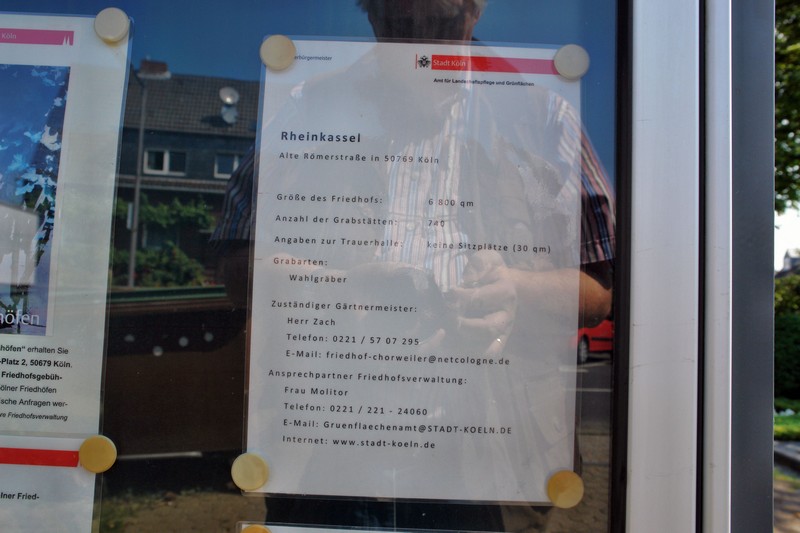 Köln
höfen
höfen" erhalten Sie
-Platz 2, 50679 Köln.
Friedhofsgebüh-
ölner Friedhöfen
ische Anfragen wer-
Friedhofsverwaltung
lner Fried-
Stadt Köln
Amt für Landschaftspflege und Grünflächen
Rheinkassel
Alte Römerstraße in 50769 Köln
Größe des Friedhofs: 6 800 qm
Anzahl der Grabstätten: 240
Angaben zur Trauerhalle: keine Sitzplätze (30 qm)
Grabarten:
Wahlgräber
Zuständiger Gärtnermeister:
Herr Zach
Telefon: 0221 / 57 07 295
E-Mail: friedhof-chorweiler@netcologne.de
Ansprechpartner Friedhofsverwaltung:
Frau Molitor
Telefon: 0221 / 221 - 24060
E-Mail: Gruenflaechenamt@STADT-KOELN.DE
Internet: www.stadt-koeln.de